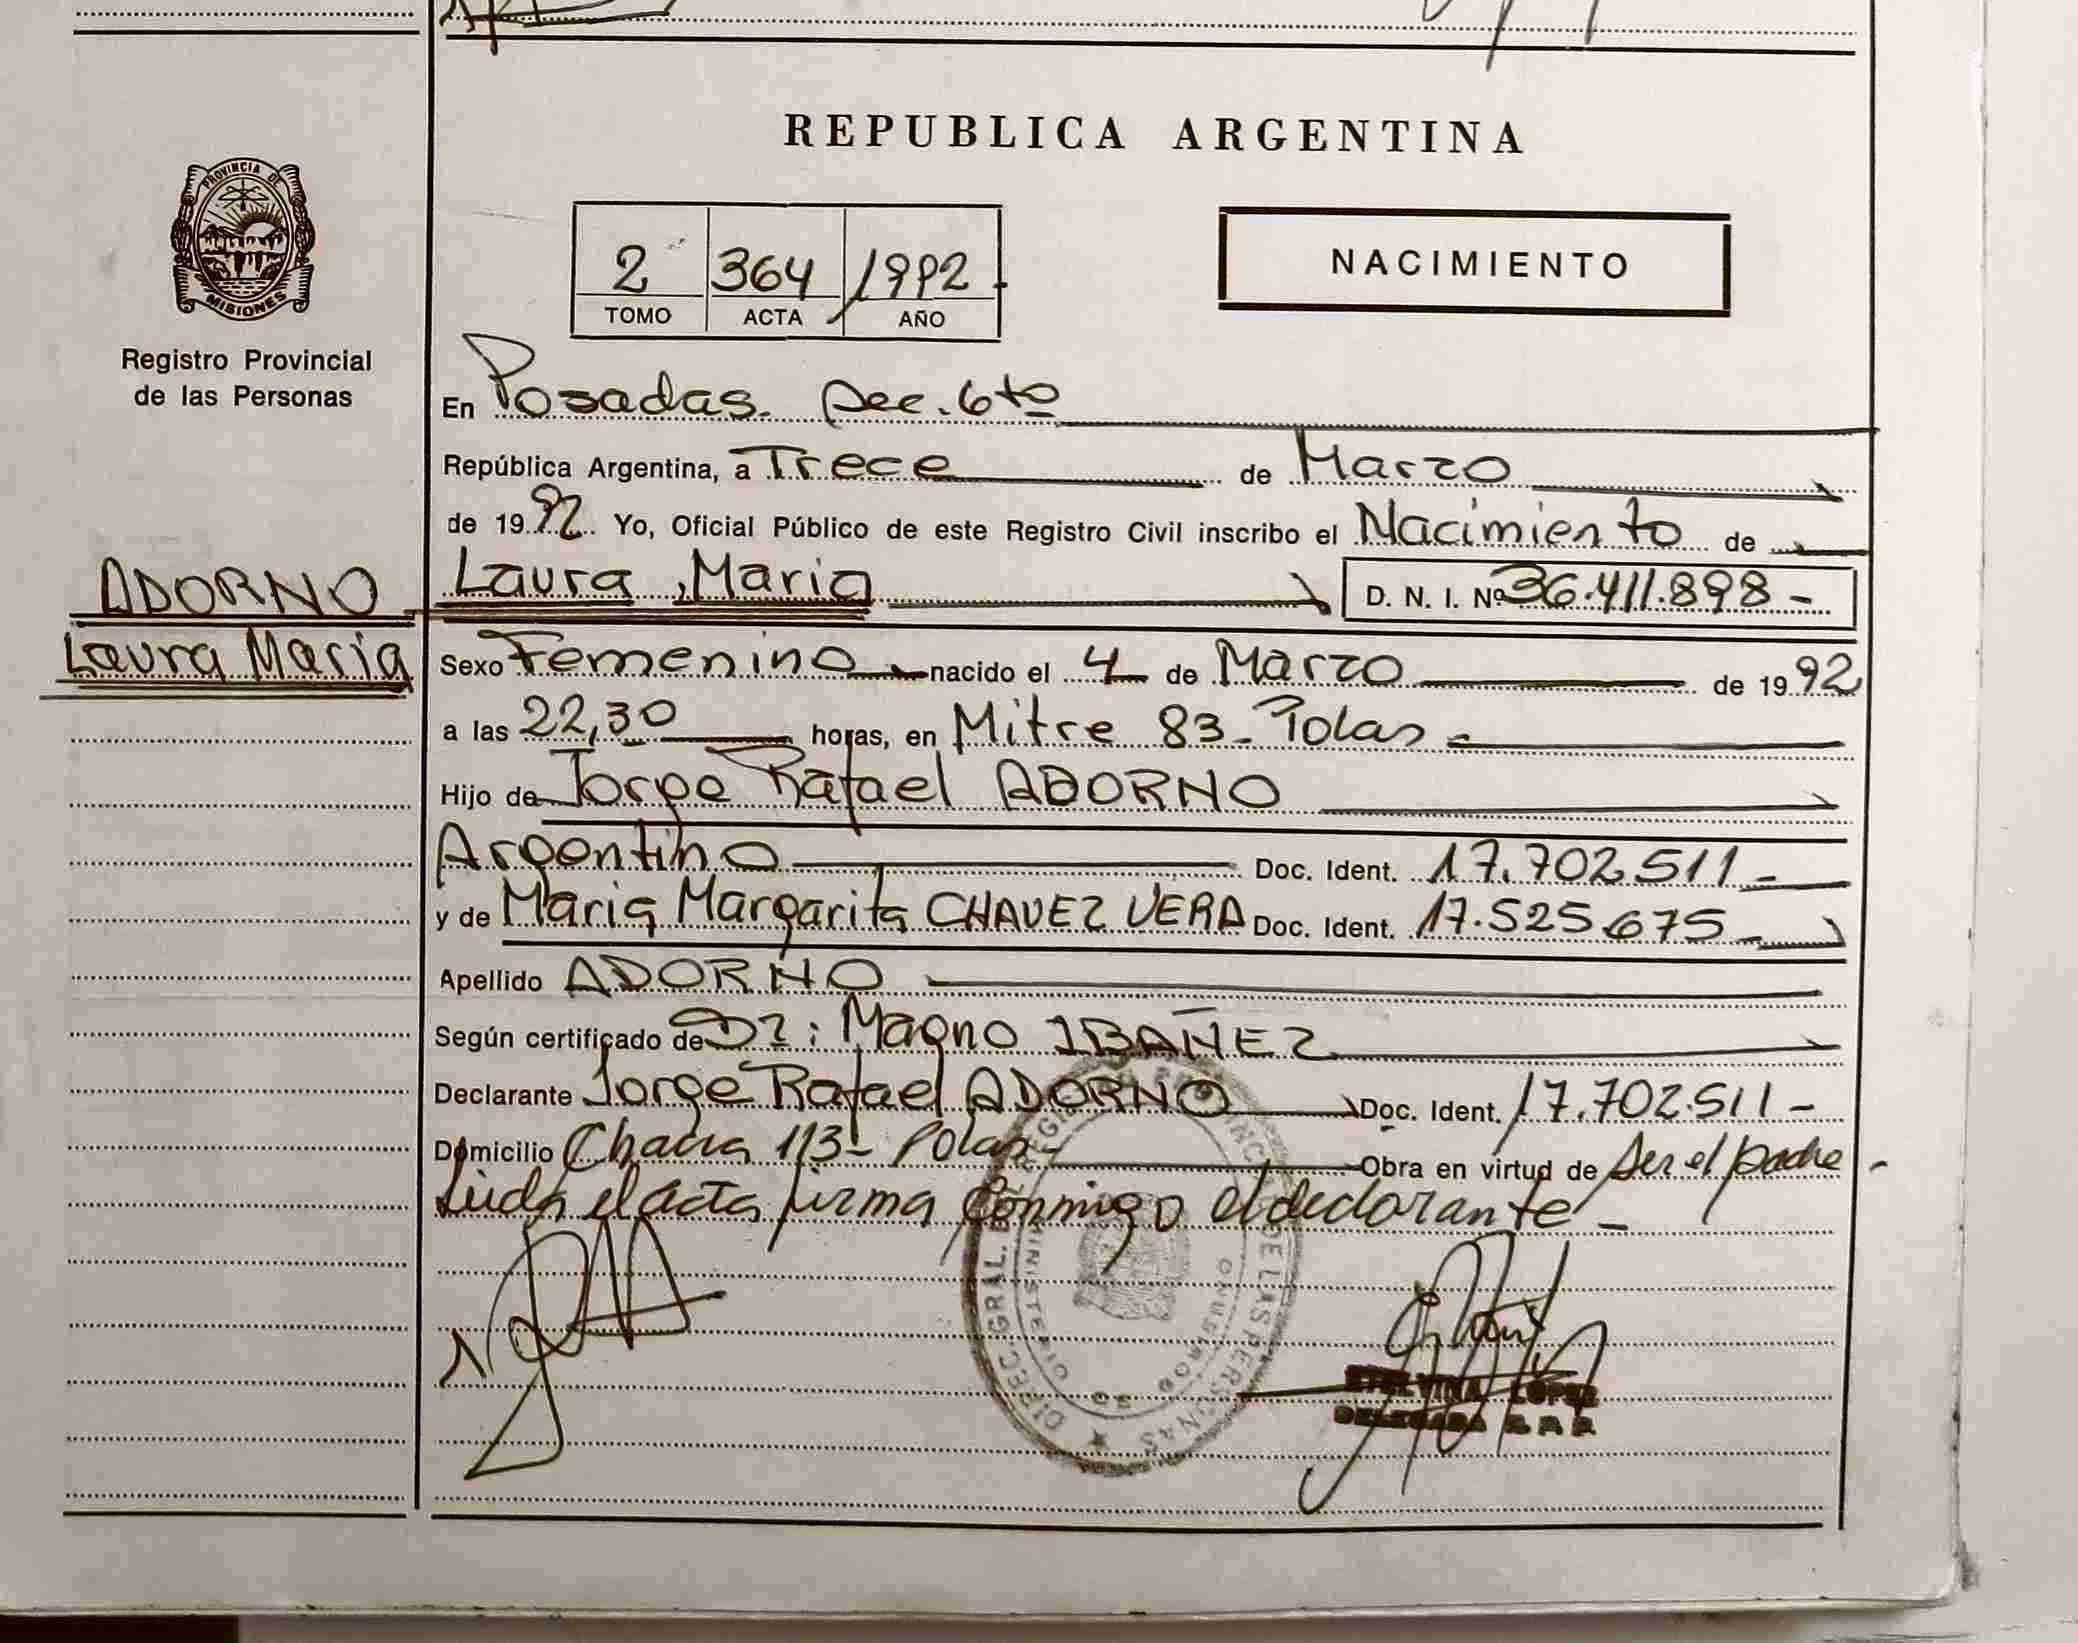 REPUBLICA ARGENTINA
PROVINCIA DE
MISIONES
Registro Provincial
de las Personas
2 364 1992
TOMO ACTA AÑO
NACIMIENTO
En Posadas. Sec. 6ta
República Argentina, a Trece de Marzo
de 1992 Yo, Oficial Público de este Registro Civil inscribo el Nacimiento de
ADORNO
Laura Maria
Laura, Maria D. N. I. Nº 36.411.898 -
Sexo Femenino nacido el 4 de Marzo de 1992
a las 22,30 horas, en Mitre 83 - Pdas
Hijo de Jorge Rafael ADORNO
Argentino Doc. Ident. 17.702.511 -
y de Maria Margarita CHAVEZ VERA Doc. Ident. 17.525.675 -
Apellido ADORNO
Según certificado de Dr: Magno IBAÑEZ
Declarante Jorge Rafael ADORNO Doc. Ident. 17.702.511 -
Domicilio Chacra 113 - Pdas - Obra en virtud de ser el padre -
Leida el acta firma conmigo el declarante -
DIREC. GRAL. DE LAS PERSONAS
MINISTERIO
ETELVINA LOPEZ
DELEGADA R.P.P.